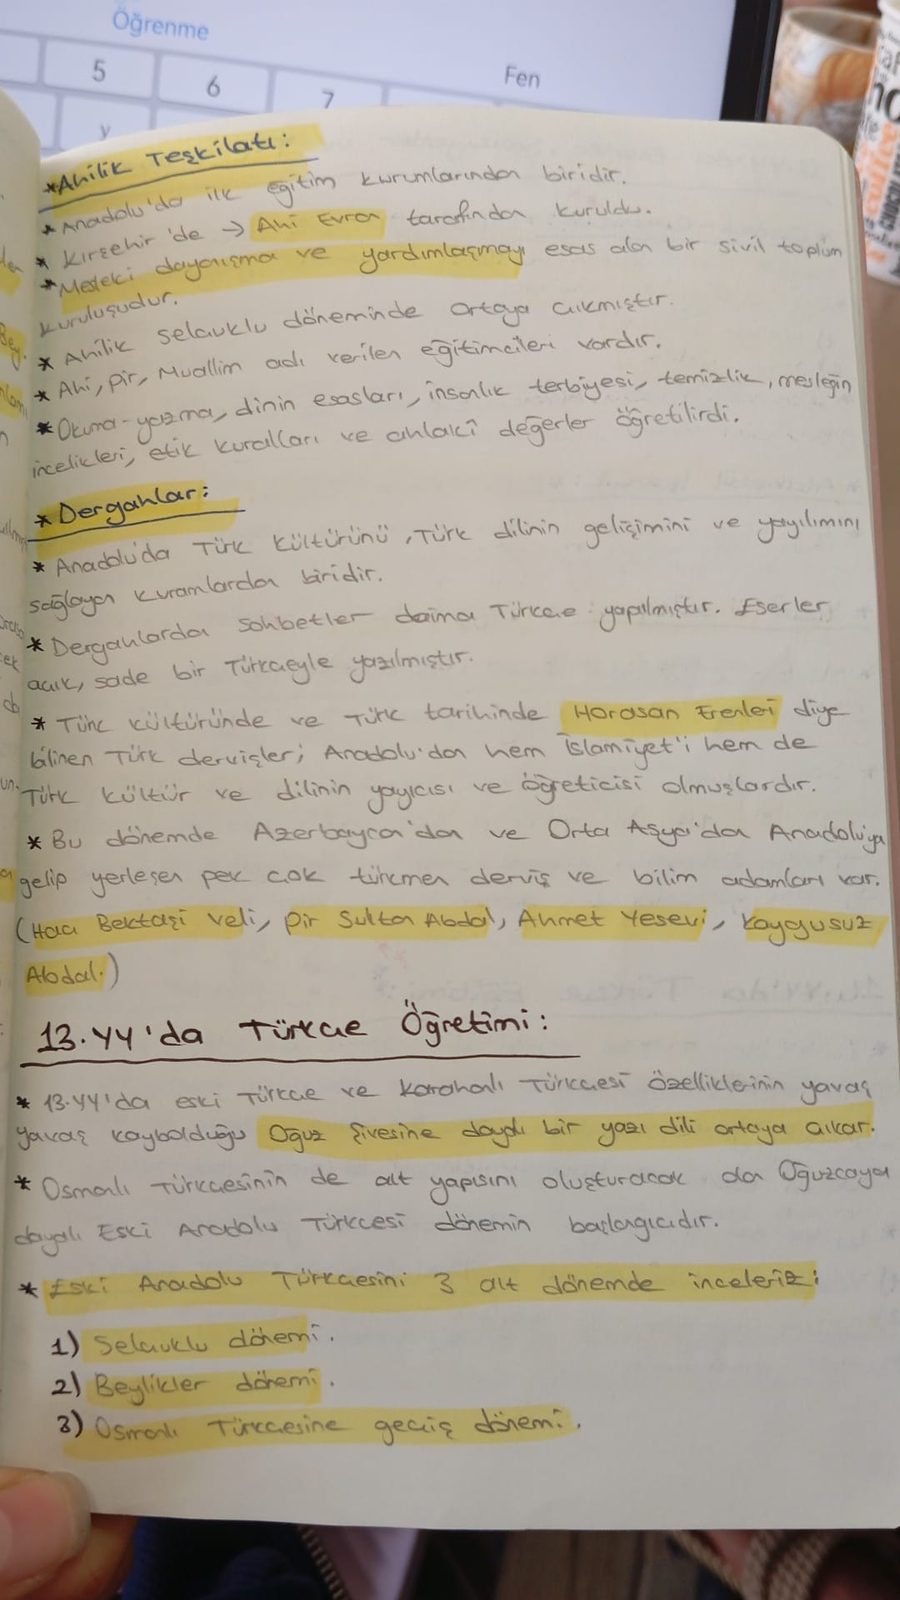 Öğrenme
5
6
7
Fen
y
*Ahilik Teşkilatı:
* Anadolu'da ilk eğitim kurumlarından biridir.
* Kırşehir'de → Ahi Evran tarafından kuruldu.
*Mesleki dayanışma ve yardımlaşmayı esas alan bir sivil toplum
kuruluşudur.
* Ahilik Selçuklu döneminde ortaya çıkmıştır.
* Ahi, pir, Muallim adı verilen eğitimcileri vardır.
*Okuma-yazma, dinin esasları, insanlık terbiyesi, temizlik, mesleğin
incelikleri, etik kuralları ve ahlakî değerler öğretilirdi.
*Dergahlar:
* Anadolu'da Türk Kültürünü, Türk dilinin gelişimini ve yayılımını
sağlayan kuramlardan biridir.
* Dergahlarda sohbetler daima Türkçe yapılmıştır. Eserler
açık, sade bir Türkçeyle yazılmıştır.
* Türk kültüründe ve Türk tarihinde Horasan Erenleri diye
bilinen Türk dervişler; Anadolu'dan hem İslamiyet'i hem de
Türk kültür ve dilinin yayıcısı ve öğreticisi olmuşlardır.
* Bu dönemde Azerbaycan'dan ve Orta Asya'dan Anadolu'ya
gelip yerleşen pek çok türkmen derviş ve bilim adamları var.
(Hacı Bektaşi Veli, Pir Sultan Abdal, Ahmet Yesevi, Kaygusuz
Abdal.)
13.YY'da Türkçe Öğretimi:
* 13.YY'da eski Türkçe ve Karahanlı Türkçesi özelliklerinin yavaş
yavaş kaybolduğu Oğuz Şivesine dayalı bir yazı dili ortaya çıkar.
* Osmanlı Türkçesinin de alt yapısını oluşturacak olan Oğuzcaya
dayalı Eski Anadolu Türkçesi dönemin başlangıcıdır.
* Eski Anadolu Türkçesini 3 alt dönemde inceleriz:
1) Selçuklu dönemi.
2) Beylikler dönemi.
3) Osmanlı Türkçesine geçiş dönemi.